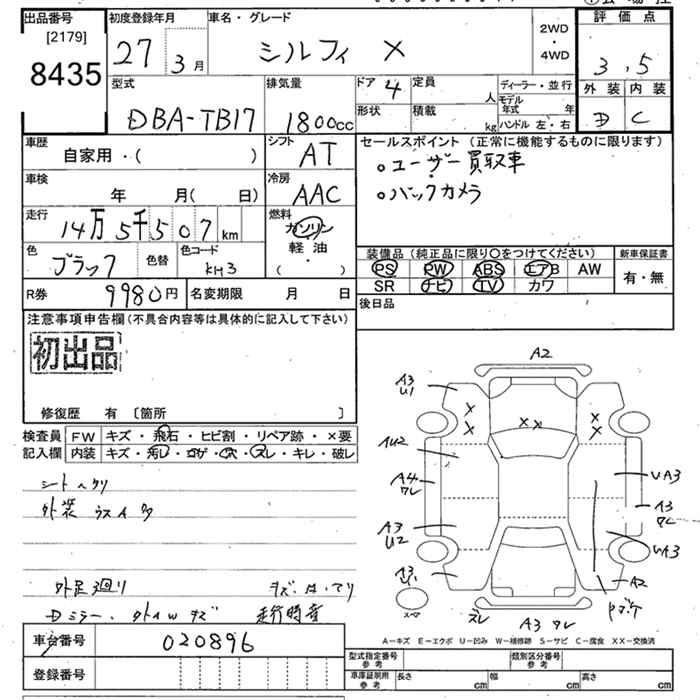 出品番号
[2179]
8435
初度登録年月
27 3月
車名・グレード
シルフィ X
2WD
・
4WD
評価点
3.5
外装 内装
D C
型式
DBA-TB17
排気量
1800cc
ドア 4
定員 人
形状
積載 kg
ディーラー・並行
モデル年式 年
ハンドル 左・右
車歴
自家用・( )
シフト
AT
セールスポイント(正常に機能するものに限ります)
○ユーザー買取車
○バックカメラ
車検
年 月( 日)
冷房
AAC
走行
14万5千507km
燃料
ガソリン
軽油
( )
色
ブラック
色替
色コード
KH3
装備品(純正品に限り○をつけてください)
PS PW ABS エアB AW
SR ナビ TV カワ
新車保証書
有・無
R券
9980円
名変期限 月 日
後日品
注意事項申告欄(不具合内容等は具体的に記入して下さい)
初出品
修復歴 有 〔箇所 〕
検査員
記入欄
FW キズ・飛石・ヒビ割・リペア跡・×要
内装 キズ・汚レ・コゲ・穴・スレ・キレ・破レ
シートヘタリ
外装 ウスイタ
外足廻り キズ・ハ・テリ
Dミラー、タイヤキズ 走行時音
A2
A3
U1
AU2
A4
ワレ
A3
U2
A3
U1
UA3
A3
ワレ
UA3
A2
ヤブケ
スレ
A3 ワレ
スペア
A-キズ E-エクボ U-凹み W-補修跡 S-サビ C-腐食 XX-交換済
車台番号
020896
登録番号
型式指定番号
参考
類別区分番号
参考
車庫証明用
参考
長さ cm
幅 cm
高さ cm